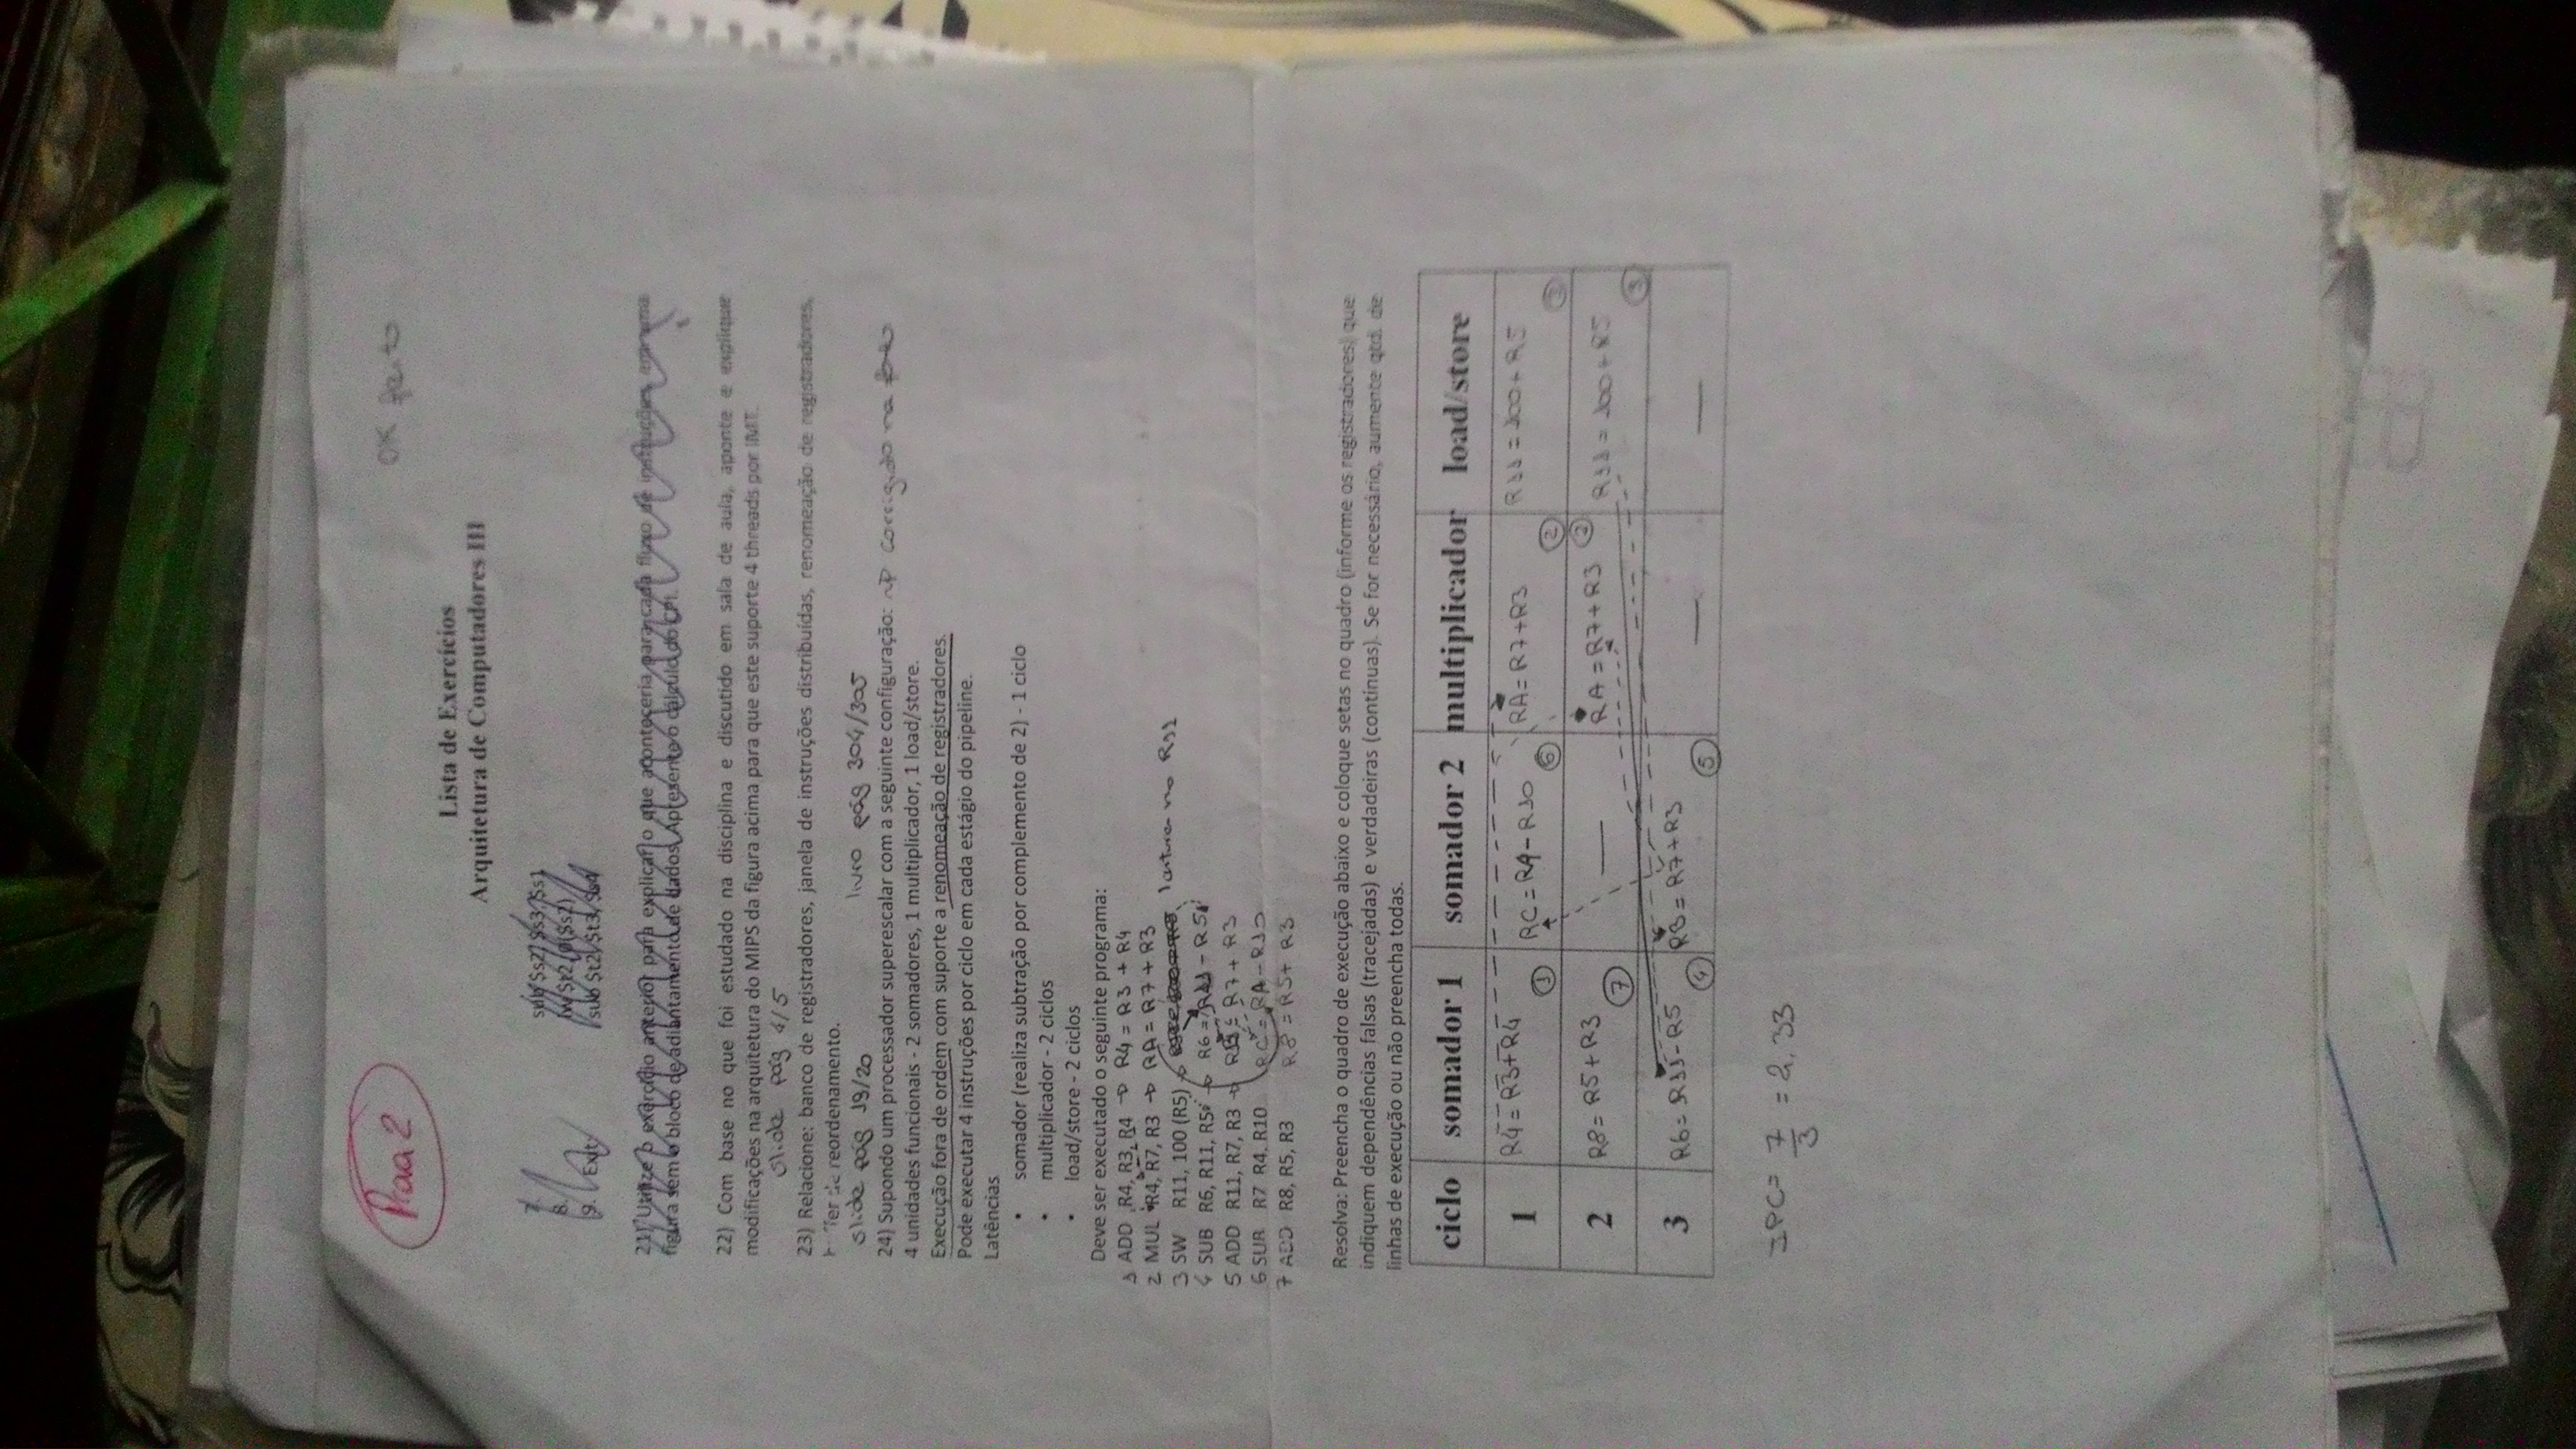 Prova 2
OK feito
Lista de Exercícios
Arquitetura de Computadores III
7. sub $s2, $s3, $s1
8. lw $t2, 0($s2)
9. Exit: sub $t2, $t3, $s4
21) Utilize o exercício anterior para explicar o que aconteceria para cada fluxo de instruções em uma
figura sem o bloco de adiantamento de dados. Apresente o cálculo do CPI.
22) Com base no que foi estudado na disciplina e discutido em sala de aula, aponte e explique
modificações na arquitetura do MIPS da figura acima para que este suporte 4 threads por IMT.
slide pág 4/5
23) Relacione: banco de registradores, janela de instruções distribuídas, renomeação de registradores,
de reordenamento.
slide pág 19/20 livro pág 304/305
24) Supondo um processador superescalar com a seguinte configuração: corrigido na
4 unidades funcionais - 2 somadores, 1 multiplicador, 1 load/store.
Execução fora de ordem com suporte a renomeação de registradores.
Pode executar 4 instruções por ciclo em cada estágio do pipeline.
Latências
• somador (realiza subtração por complemento de 2) - 1 ciclo
• multiplicador - 2 ciclos
• load/store - 2 ciclos
Deve ser executado o seguinte programa:
1 ADD R4, R3, R4 → R4 = R3 + R4
2 MUL R4, R7, R3 → RA = R7 + R3
3 SW R11, 100 (R5) → leitura no R11
4 SUB R6, R11, R5 → R6 = R11 - R5
5 ADD R11, R7, R3 → RB = R7 + R3
6 SUB R7 R4, R10 RC = RA - R10
7 ADD R8, R5, R3 R8 = R5 + R3
Resolva: Preencha o quadro de execução abaixo e coloque setas no quadro (informe os registradores) que
indiquem dependências falsas (tracejadas) e verdadeiras (contínuas). Se for necessário, aumente qtd. de
linhas de execução ou não preencha todas.
ciclo somador 1 somador 2 multiplicador load/store
1 R4 = R3+R4 ① RC = RA - R10 ⑥ RA = R7+R3 ② R11 = 100 + R5 ③
2 R8 = R5+R3 ⑦ — RA = R7+R3 ② R11 = 100 + R5 ③
3 R6 = R11 - R5 ④ RB = R7+R3 ⑤ — —
IPC = 7/3 = 2,33